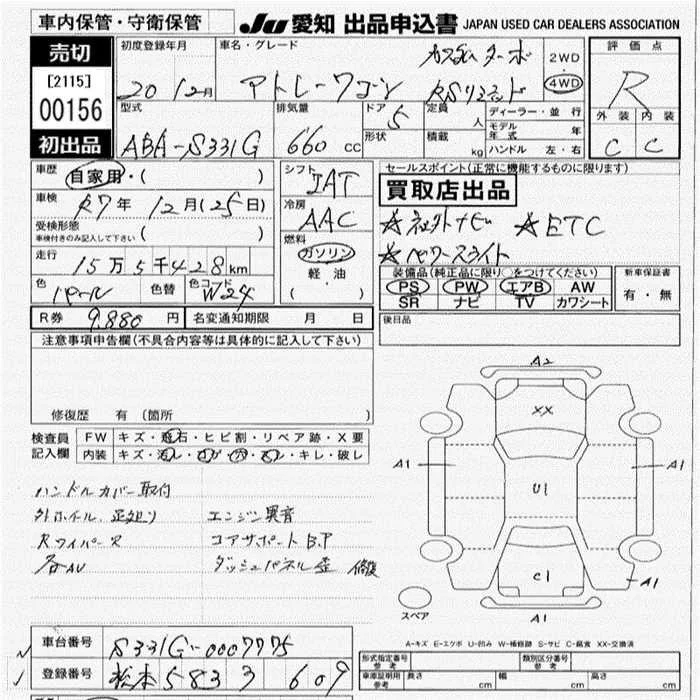 車内保管・守衛保管
JU 愛知 出品申込書 JAPAN USED CAR DEALERS ASSOCIATION
売切
[2115]
00156
初出品
初度登録年月
20 12月
車名・グレード
カスタムターボ
アトレーワゴン RSリミテッド
2WD
・
4WD
評価点
R
外装 内装
C C
型式
ABA-S331G
排気量
660 cc
ドア 5
形状
定員 人
積載 kg
ディーラー・並行
モデル年式 年
ハンドル 左・右
車歴 自家用・( )
車検 R7年 12月(25日)
受検形態
車検付きのみ記入して下さい ( )
走行 15万5千428km
色 パール 色替 色コード W24
シフト IAT
冷房 AAC
燃料
ガソリン
軽・油
( )
セールスポイント(正常に機能するものに限ります)
買取店出品
☆社外ナビ ☆ETC
☆パワースライド
装備品(純正品に限り○をつけてください)
PS PW エアB AW
SR ナビ TV カワシート
新車保証書
有・無
R券 9,880円 名変通知期限 月 日
後日品
注意事項申告欄(不具合内容等は具体的に記入して下さい)
修復歴 有 (箇所 )
検査員記入欄
FW キズ・飛石・ヒビ割・リペア跡・X要
内装 キズ・汚レ・コゲ・穴・スレ・キレ・破レ
ハンドルカバー取付
外ホイル、
Rワイパーヌ エンジン異音
各AU コアサポートB.P
ダッシュパネル歪 修復
A2
XX
A1 A1
U1
C1
A1
A1
スペア
A-キズ E-エクボ U-凹み W-補修跡 S-サビ C-腐食 XX-交換済
車台番号 S331G-0007775
登録番号 松本 583 3 609
形式指定番号 参考
類別区分番号 参考
車庫証明用 参考 長さ cm 幅 cm 高さ cm